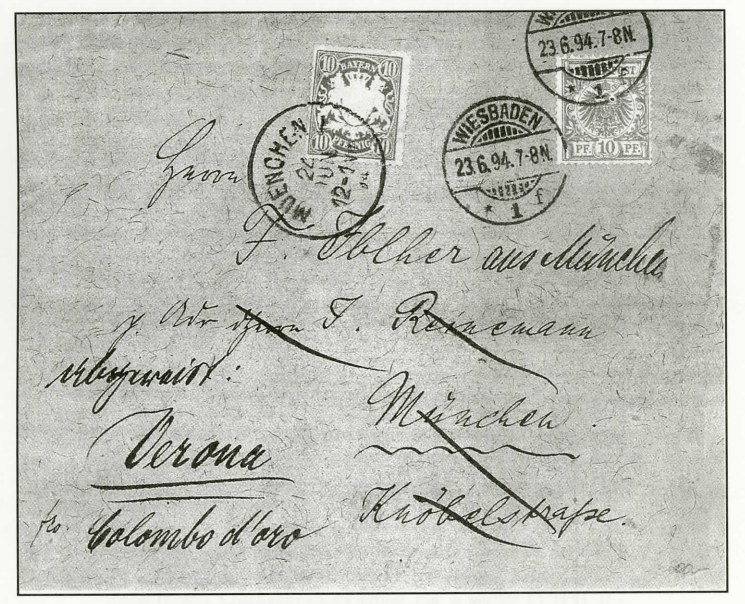 W
23.6.94.7-8N.
* 1. f
10 BAYERN 10
10 PFENNIG 10
POST
PF. 10 PF.
MUENCHEN
24
JUN
12-1
WIESBADEN
23.6.94.7-8N.
* 1 f
Herrn
F. aus München
p. Adr Herrn F. Reinemann
abgereist:
München.
Verona
Knöbelstraße.
Colombo d'oro